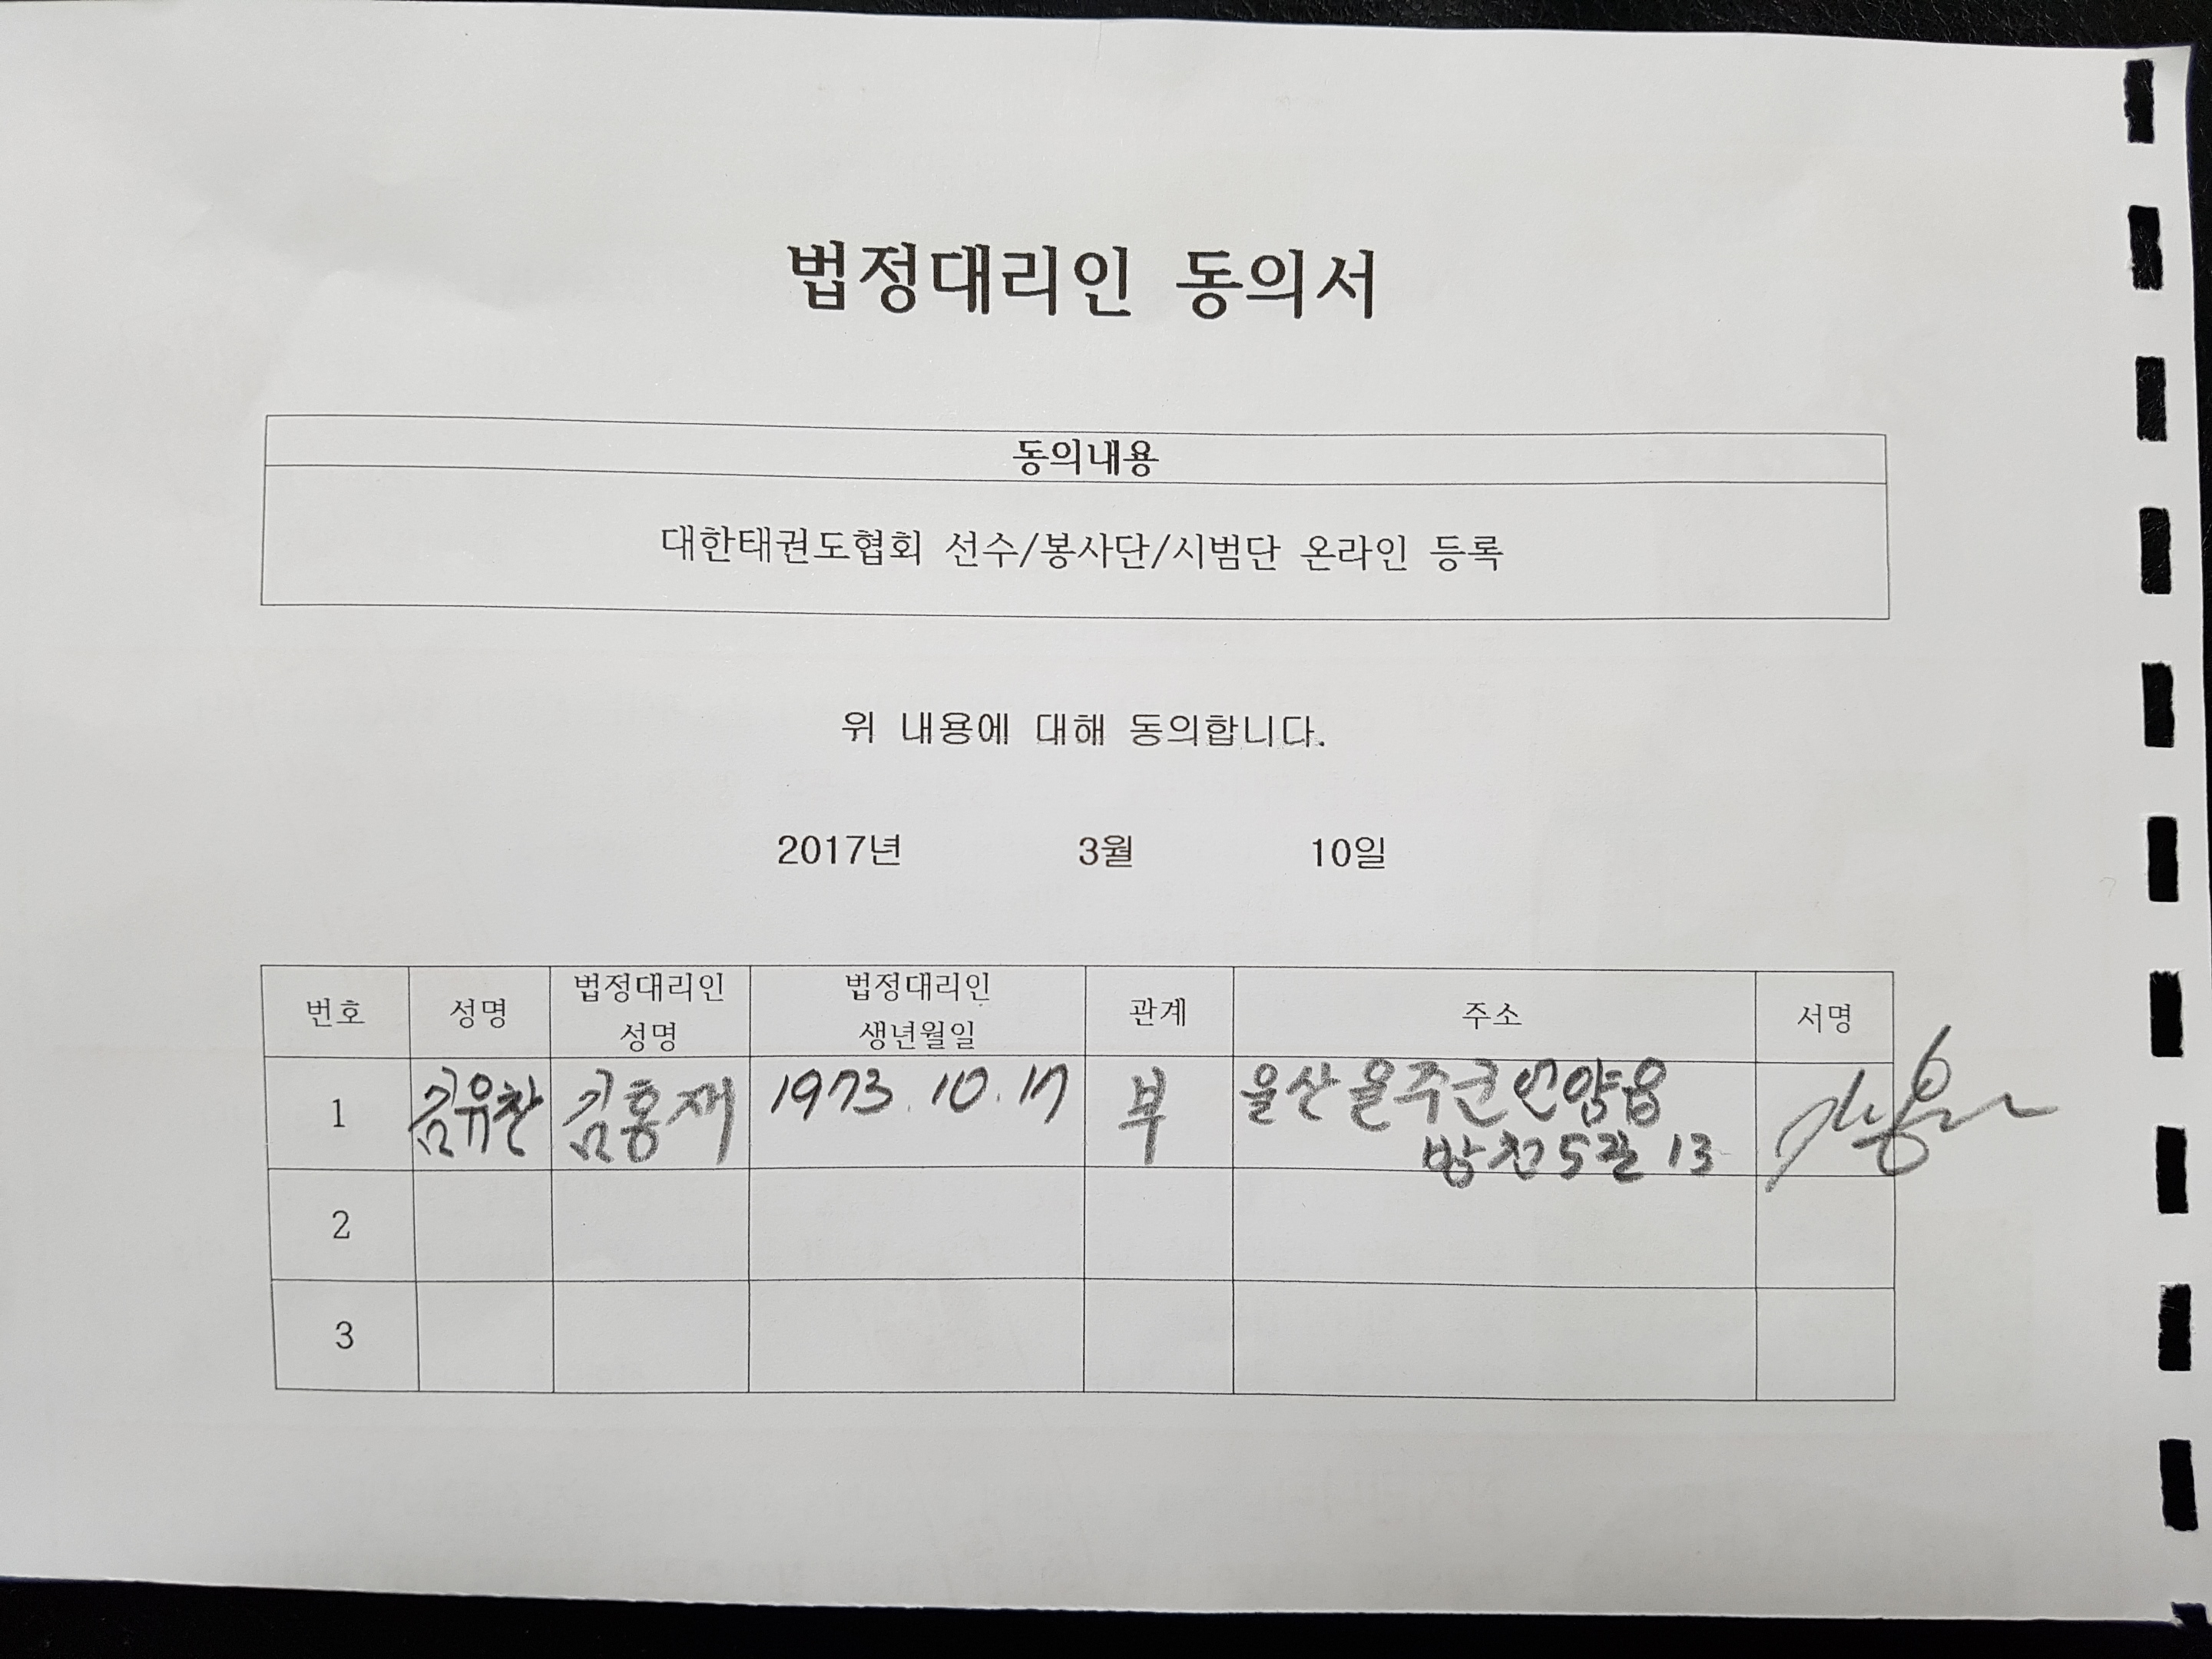 법정대리인 동의서
동의내용
대한태권도협회 선수/봉사단/시범단 온라인 등록
위 내용에 대해 동의합니다.
2017년 3월 10일
번호 성명 법정대리인 성명 법정대리인 생년월일 관계 주소 서명
1 김유찬 김홍재 1973.10.17 부 울산 울주군 언양읍
방천5길 13
2
3